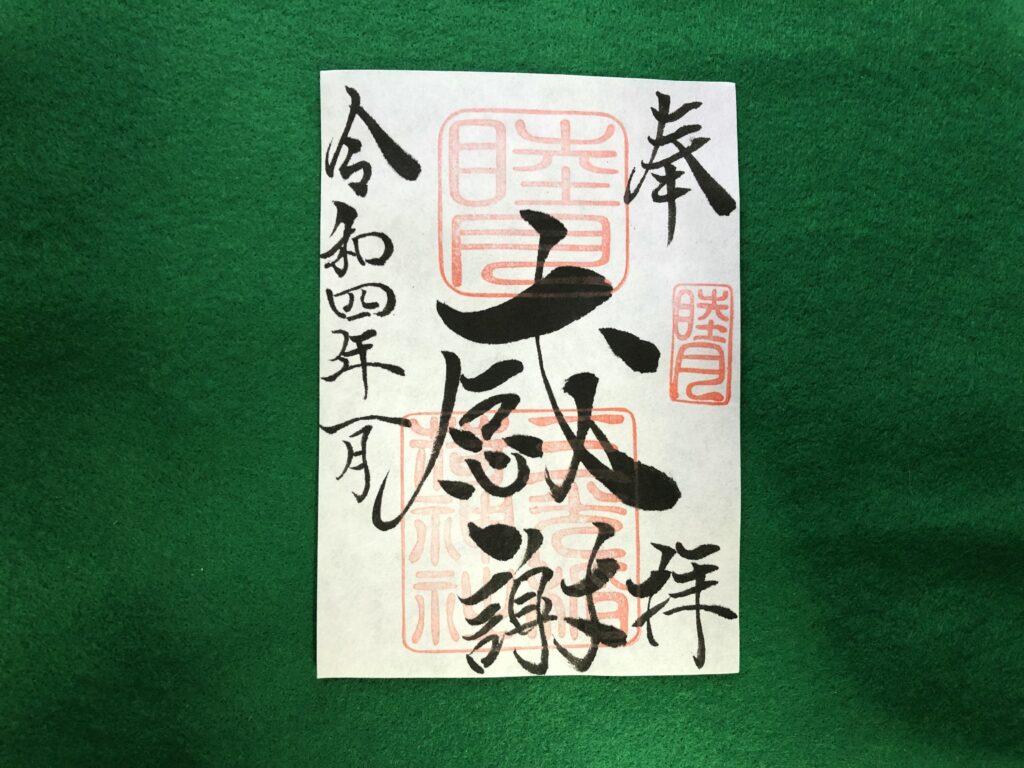 奉拝
睦月
睦月
感謝
令和四年一月